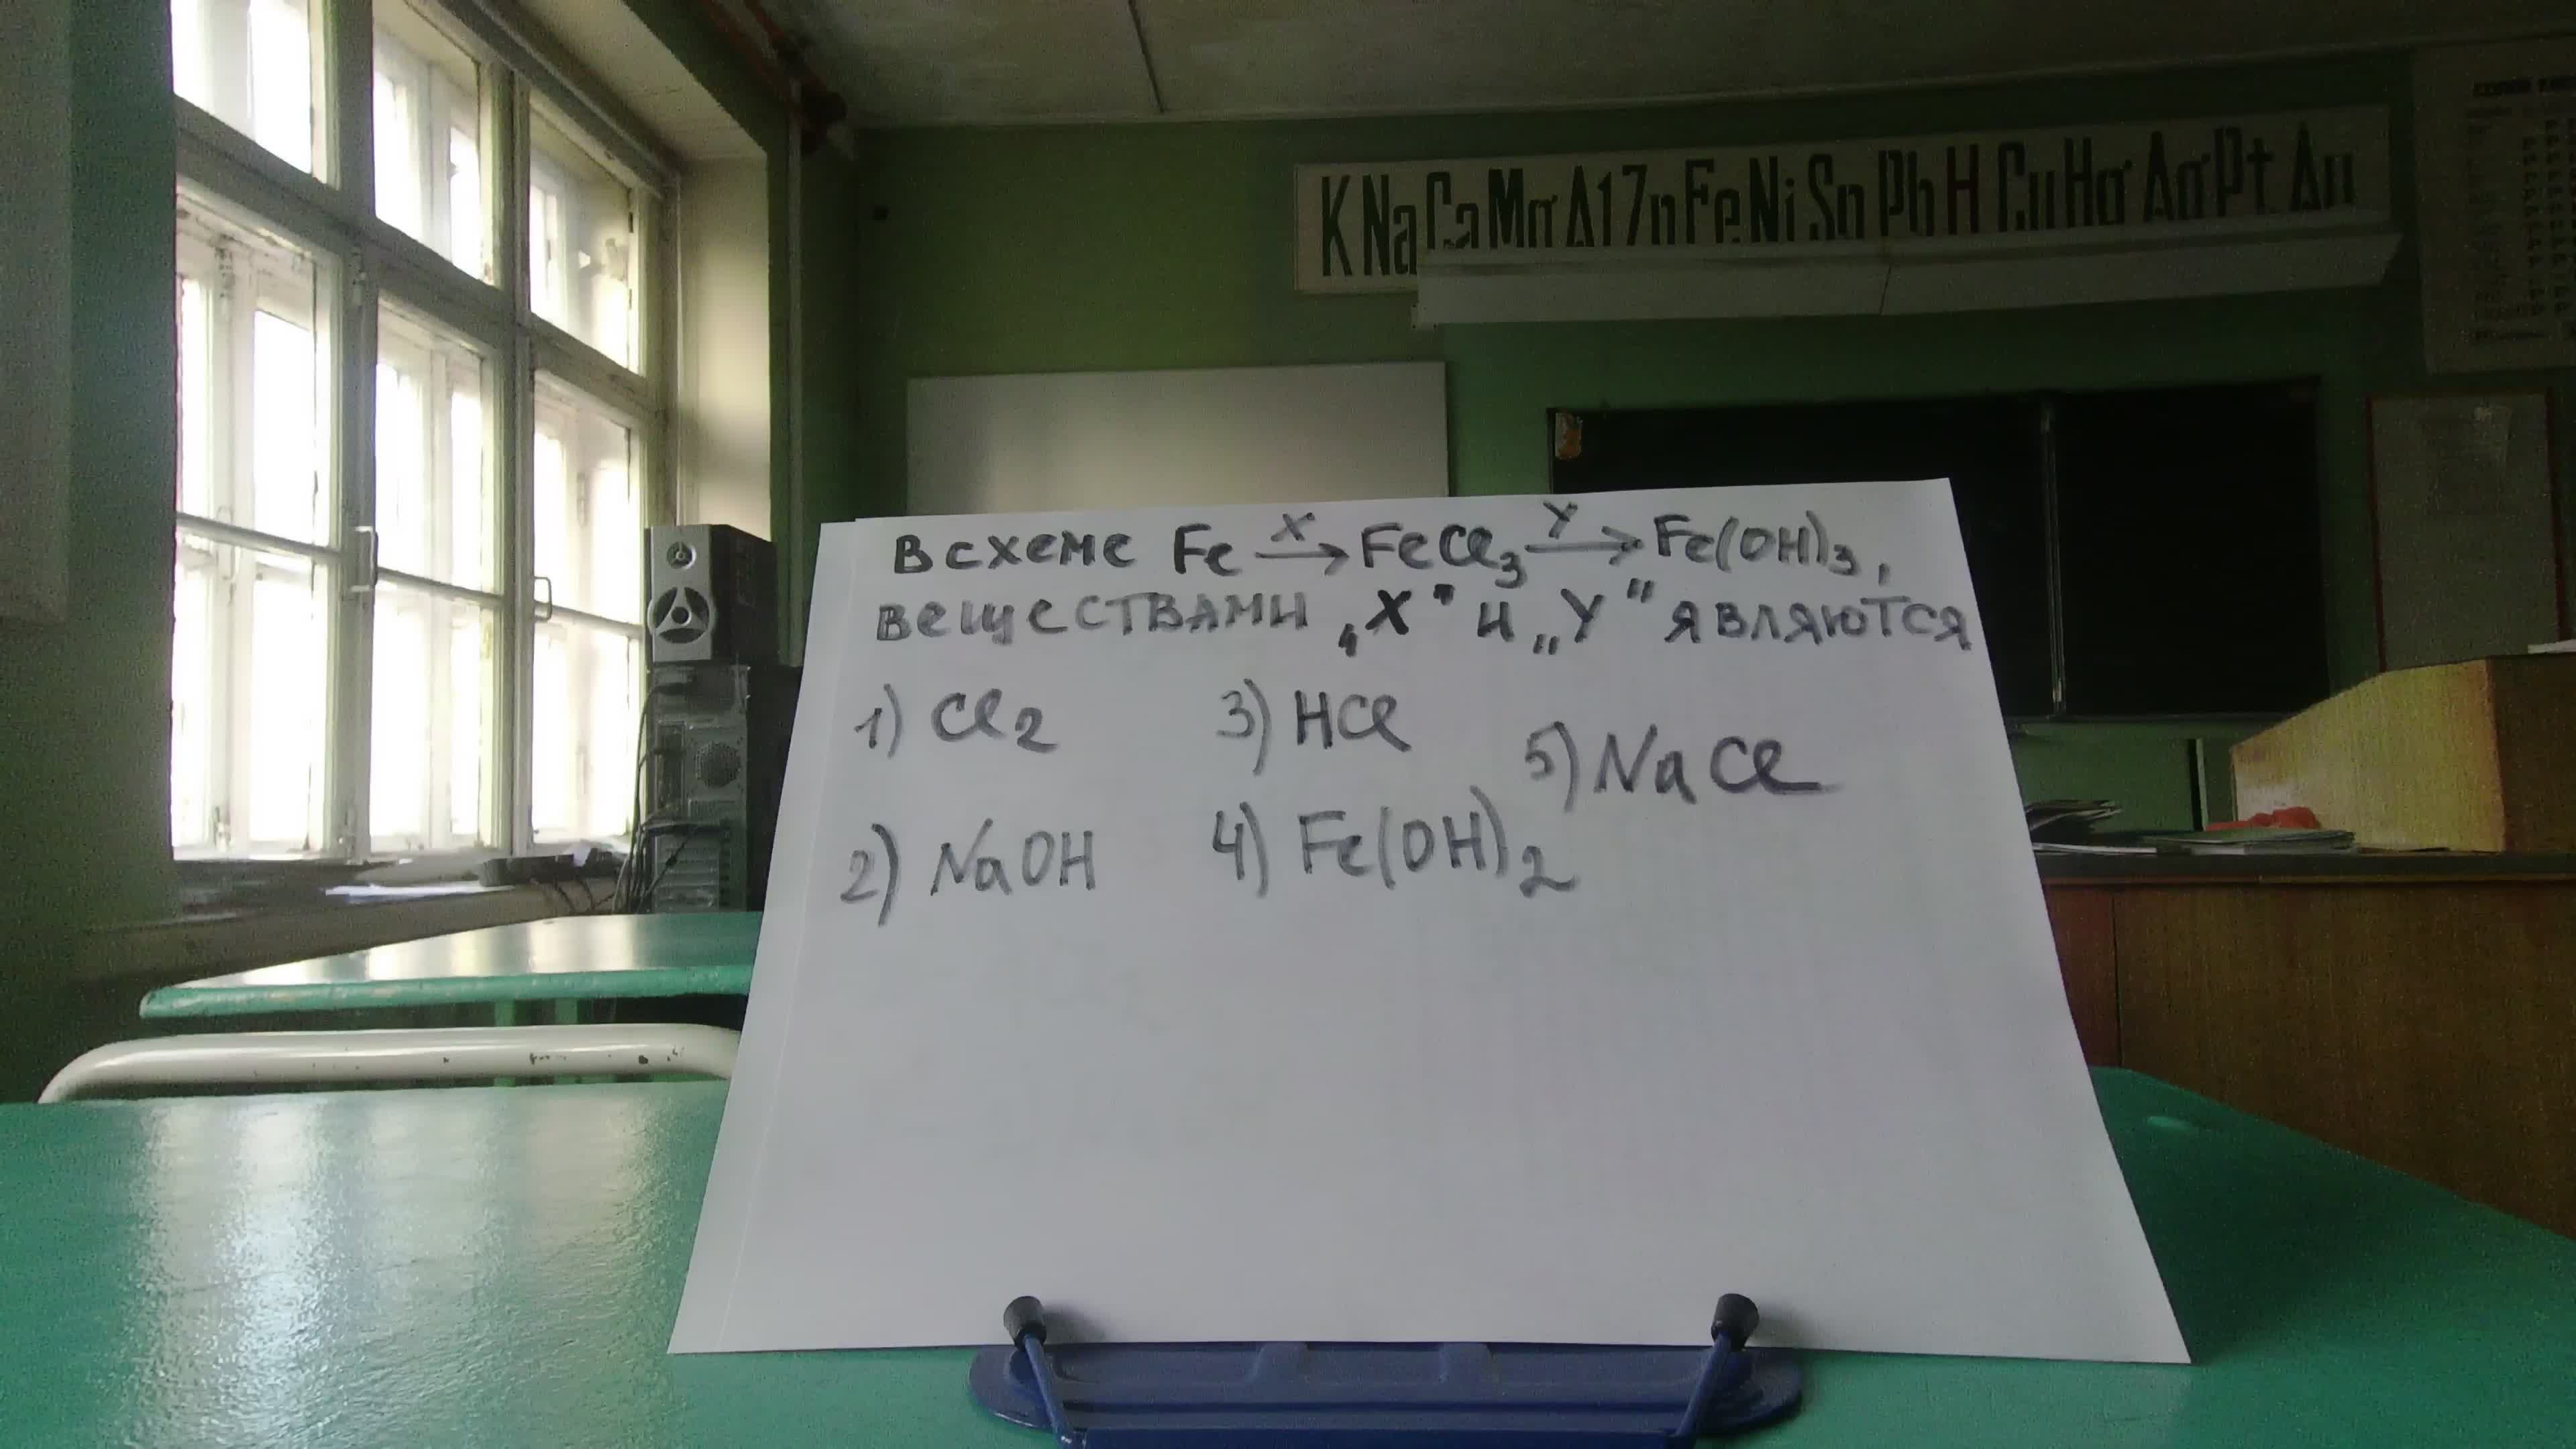 K Na Ca Mg Al Zn Fe Ni Sn Pb H Cu Hg Ag Pt Au
В схеме Fe X→ FeCl3 Y→ Fe(OH)3,
веществами „X" и „Y" являются
1) Cl2 3) HCl 5) NaCl
2) NaOH 4) Fe(OH)2